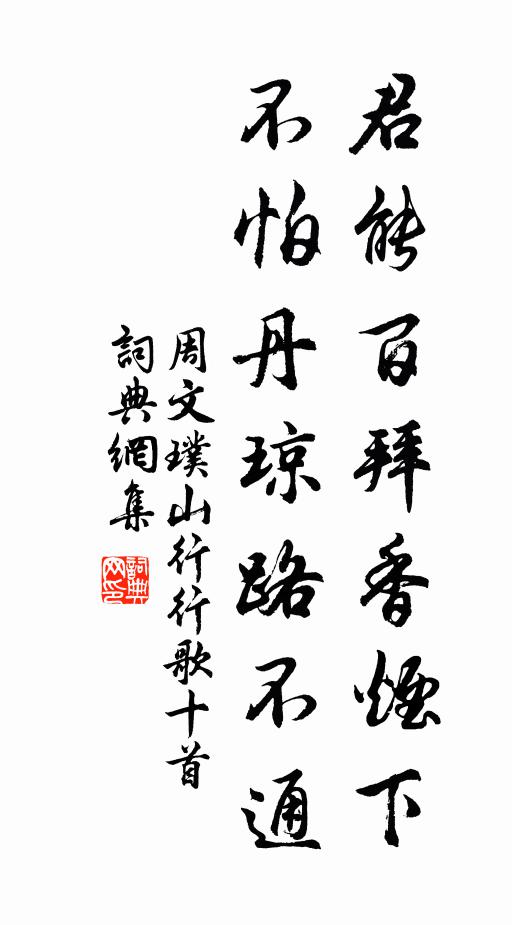 君能百拜香煙下
不怕丹琼路不通
周文璞山行行歌十首
詞典網集
詞典网印